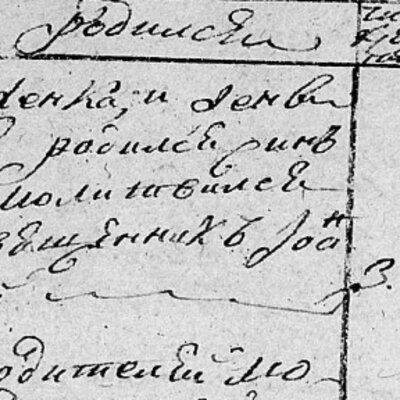 родилсеи
денка, и денви
родилсе синъ
молитвилсе
священникъ Іоанн
3.
родителеи мо-